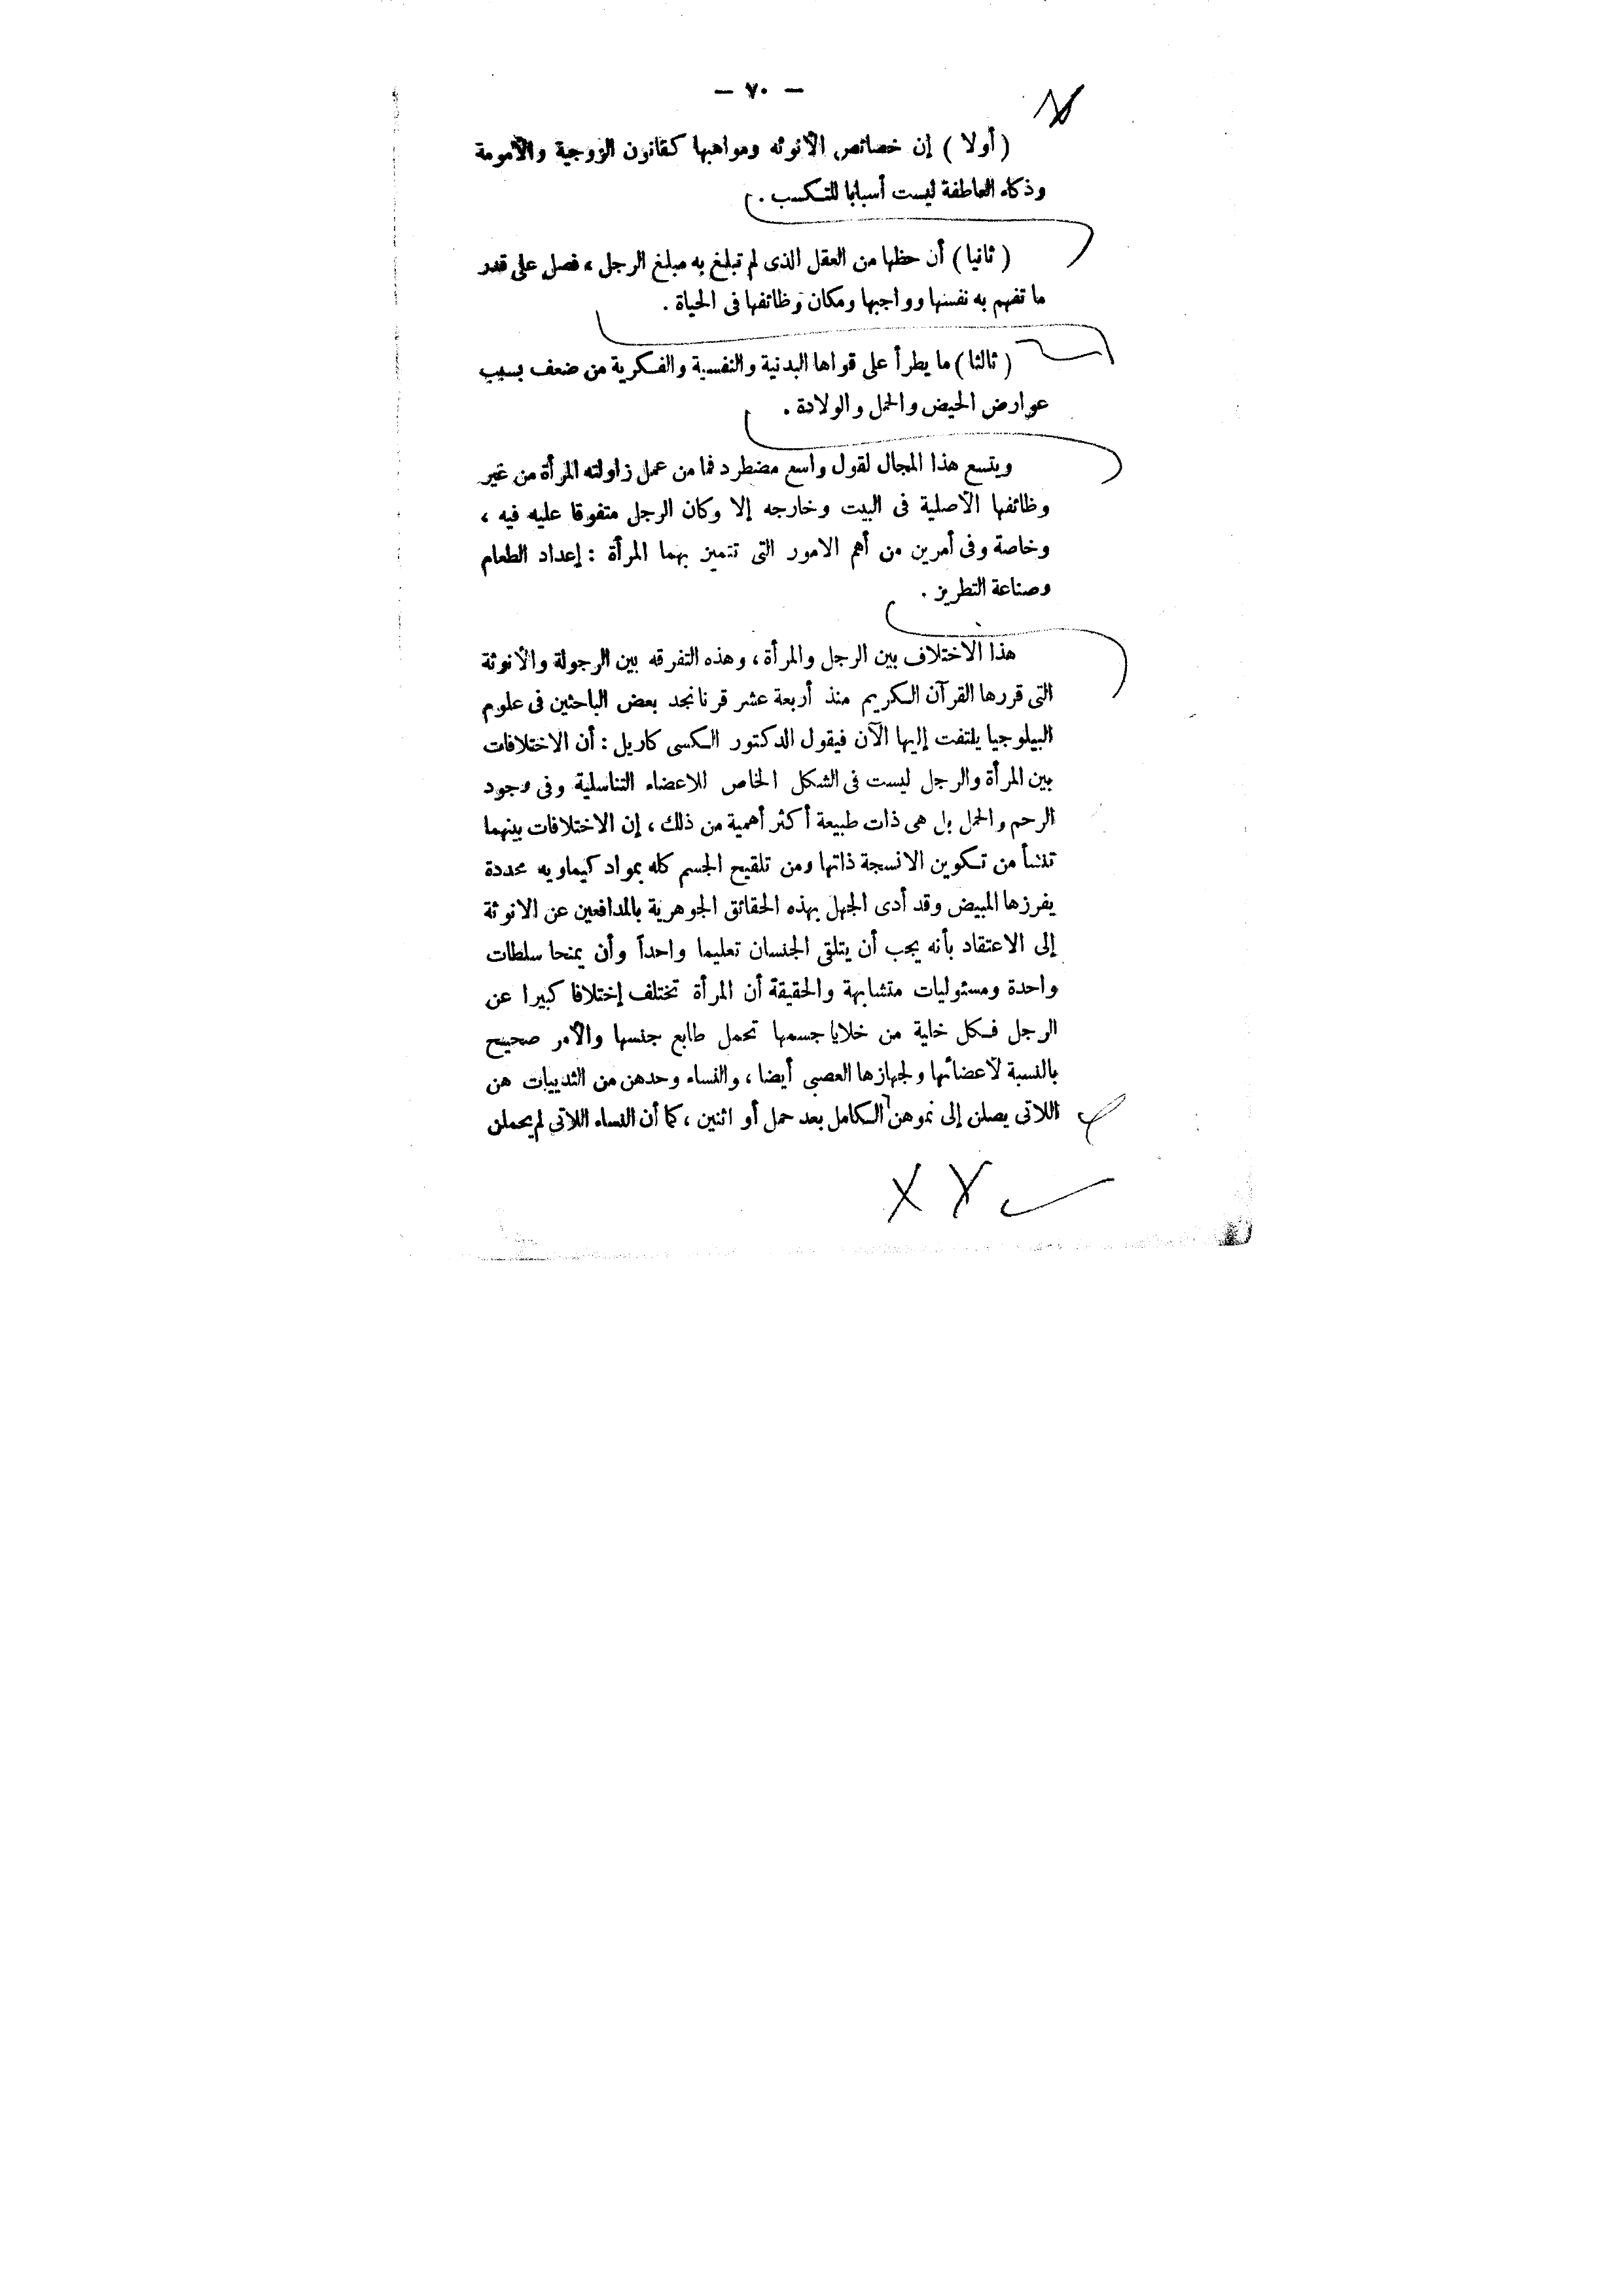 — ٧٠ —
( أولا ) إن خصائص الأنوثه ومواهبها كقانون الزوجية والأمومة
وذكاء العاطفة ليست أسبابا للتكسب .
( ثانيا ) أن حظها من العقل الذى لم تبلغ به مبلغ الرجل ، فصل على قدر
ما تفهم به نفسها وواجبها ومكان وظائفها فى الحياة .
( ثالثا ) ما يطرأ على قواها البدنية والنفسية والفكرية من ضعف بسبب
عوارض الحيض والحمل والولادة .
ويتسع هذا المجال لقول واسع مضطرد فما من عمل زاولته المرأة من غير
وظائفها الأصلية فى البيت وخارجه إلا وكان الرجل متفوقا عليه فيه ،
وخاصة وفى أمرين من أهم الامور التى تتميز بهما المرأة : إعداد الطعام
وصناعة التطريز .
هذا الاختلاف بين الرجل والمرأة ، وهذه التفرقه بين الرجولة والأنوثة
التى قررها القرآن الكريم منذ أربعة عشر قرنا نجد بعض الباحثين فى علوم
البيلوجيا يلتفت إليها الآن فيقول الدكتور الكسى كاريل : أن الاختلافات
بين المرأة والرجل ليست فى الشكل الخاص للاعضاء التناسلية وفى وجود
الرحم والحمل بل هى ذات طبيعة أكثر أهمية من ذلك ، إن الاختلافات بينهما
تنشأ من تكوين الانسجة ذاتها ومن تلقيح الجسم كله بمواد كيماويه محددة
يفرزها المبيض وقد أدى الجهل بهذه الحقائق الجوهرية بالمدافعين عن الانوثة
إلى الاعتقاد بأنه يجب أن يتلقى الجنسان تعليما واحداً وأن يمنحا سلطات
واحدة ومسئوليات متشابهة والحقيقة أن المرأة تختلف إختلافا كبيرا عن
الرجل فكل خلية من خلايا جسمها تحمل طابع جنسها والأمر صحيح
بالنسبة لأعضائها ولجهازها العصبى أيضا ، والنساء وحدهن من الثدييات هن
اللاتى يصلن إلى نموهن الكامل بعد حمل أو اثنين ، كما أن النساء اللاتى لم يحملن